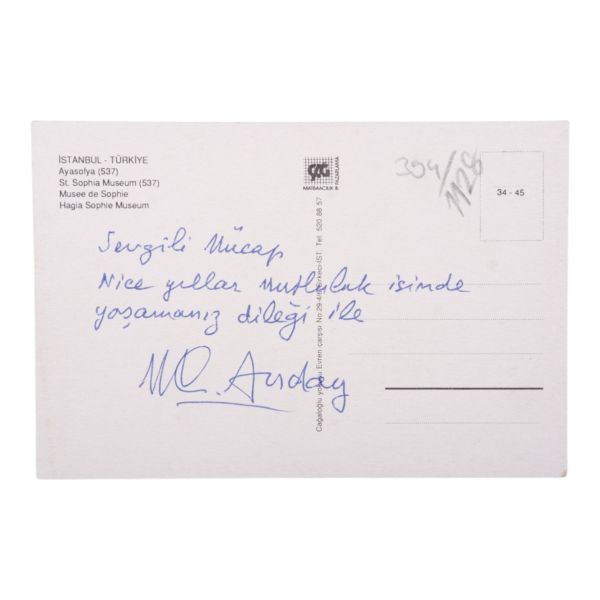 İSTANBUL - TÜRKİYE
Ayasofya (537)
St. Sophia Museum (537)
Musee de Sophie
Hagia Sophie Museum
ÇAĞ
MATBAACILIK &
PAZARLAMA
394/1128
34 - 45
Sevgili Mücap
Nice yıllar mutluluk içinde
yaşamanız dileği ile
M C. Anday
Cağaloğlu Evren çarşısı No 29-4 Sirkeci-İST. Tel. 520 88 57